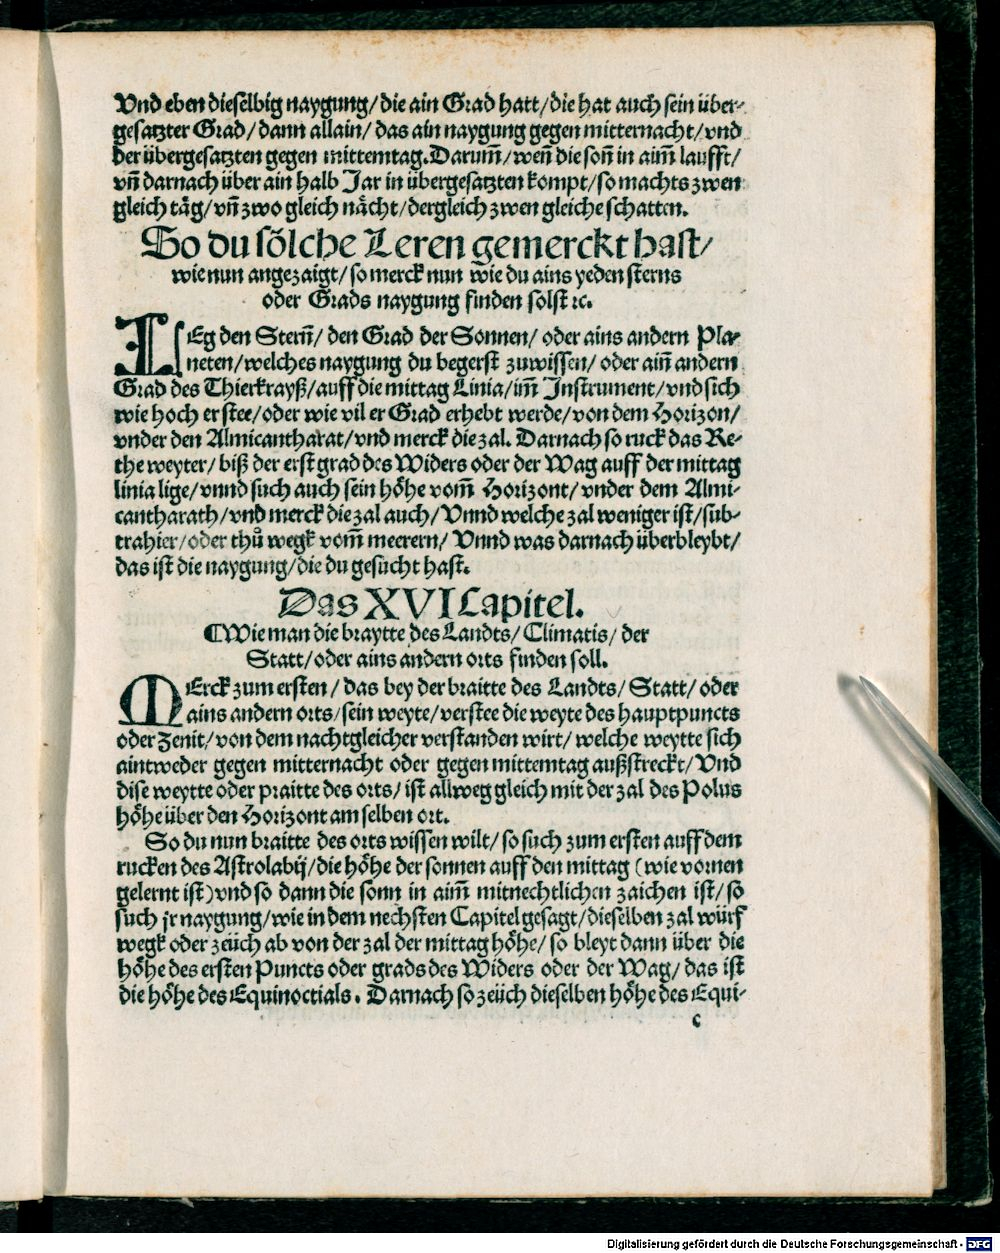 Vnd eben dieselbig naygung/ die ain Grad hatt/ die hat auch sein über-
gesatzter Grad/ dann allain/ das ain naygung gegen mitternacht/ vnd
der übergesatzten gegen mittemtag. Darum̃/ weñ die soñ in aim̃ laufft/
vñ darnach über ain halb Jar in übergesatzten kompt/ so machts zwen
gleich täg/ vñ zwo gleich nächt/ dergleich zwen gleiche schatten.
So du sölche Leren gemerckt hast/
wie nun angezaigt/ so merck nun wie du ains yeden sterns
oder Grads naygung finden solst ꝛc.
LEg den Sterñ/ den Grad der Sonnen/ oder ains andern Pla-
neten/ welches naygung du begerst zuwissen/ oder aiñ andern
Grad des Thierkrayß/ auff die mittag Linia/ im̃ Instrument/ vnd sich
wie hoch er stee/ oder wie vil er Grad erhebt werde/ von dem Horizon/
vnder den Almicantharat/ vnd merck die zal. Darnach so ruck das Re-
the weyter/ biß der erst grad des Widers oder der Wag auff der mittag
linia lige/ vnnd such auch sein höhe vom̃ Horizont/ vnder dem Almi-
cantharath/ vnd merck die zal auch/ Vnnd welche zal weniger ist/ sub-
trahier/ oder thů wegk vom̃ meerern/ Vnnd was darnach überbleybt/
das ist die naygung/ die du gesücht hast.
Das XVI Capitel.
¶Wie man die braytte des Landts/ Climatis/ der
Statt/ oder ains andern orts finden soll.
MErck zum ersten/ das bey der braitte des Landts/ Statt/ oder
ains andern orts/ sein weyte/ verstee die weyte des hauptpuncts
oder Zenit/ von dem nachtgleicher verstanden wirt/ welche weytte sich
aintweder gegen mitternacht oder gegen mittemtag außstreckt/ Vnd
dise weytte oder praitte des orts/ ist allweg gleich mit der zal des Polus
höhe über den Horizont am selben ort.
So du nun braitte des orts wissen wilt/ so such zum ersten auff dem
rucken des Astrolabij/ die höhe der sonnen auff den mittag (wie vornen
gelernt ist) vnd so dann die sonn in aim̃ mitnechtlichen zaichen ist/ so
such jr naygung/ wie in dem nechsten Capitel gesagt/ dieselben zal würf
wegk oder zeüch ab von der zal der mittag höhe/ so bleyt dann über die
höhe des ersten Puncts oder grads des Widers oder der Wag/ das ist
die höhe des Equinoctials. Darnach so zeüch dieselben höhe des Equi-
c
Digitalisierung gefördert durch die Deutsche Forschungsgemeinschaft - DFG